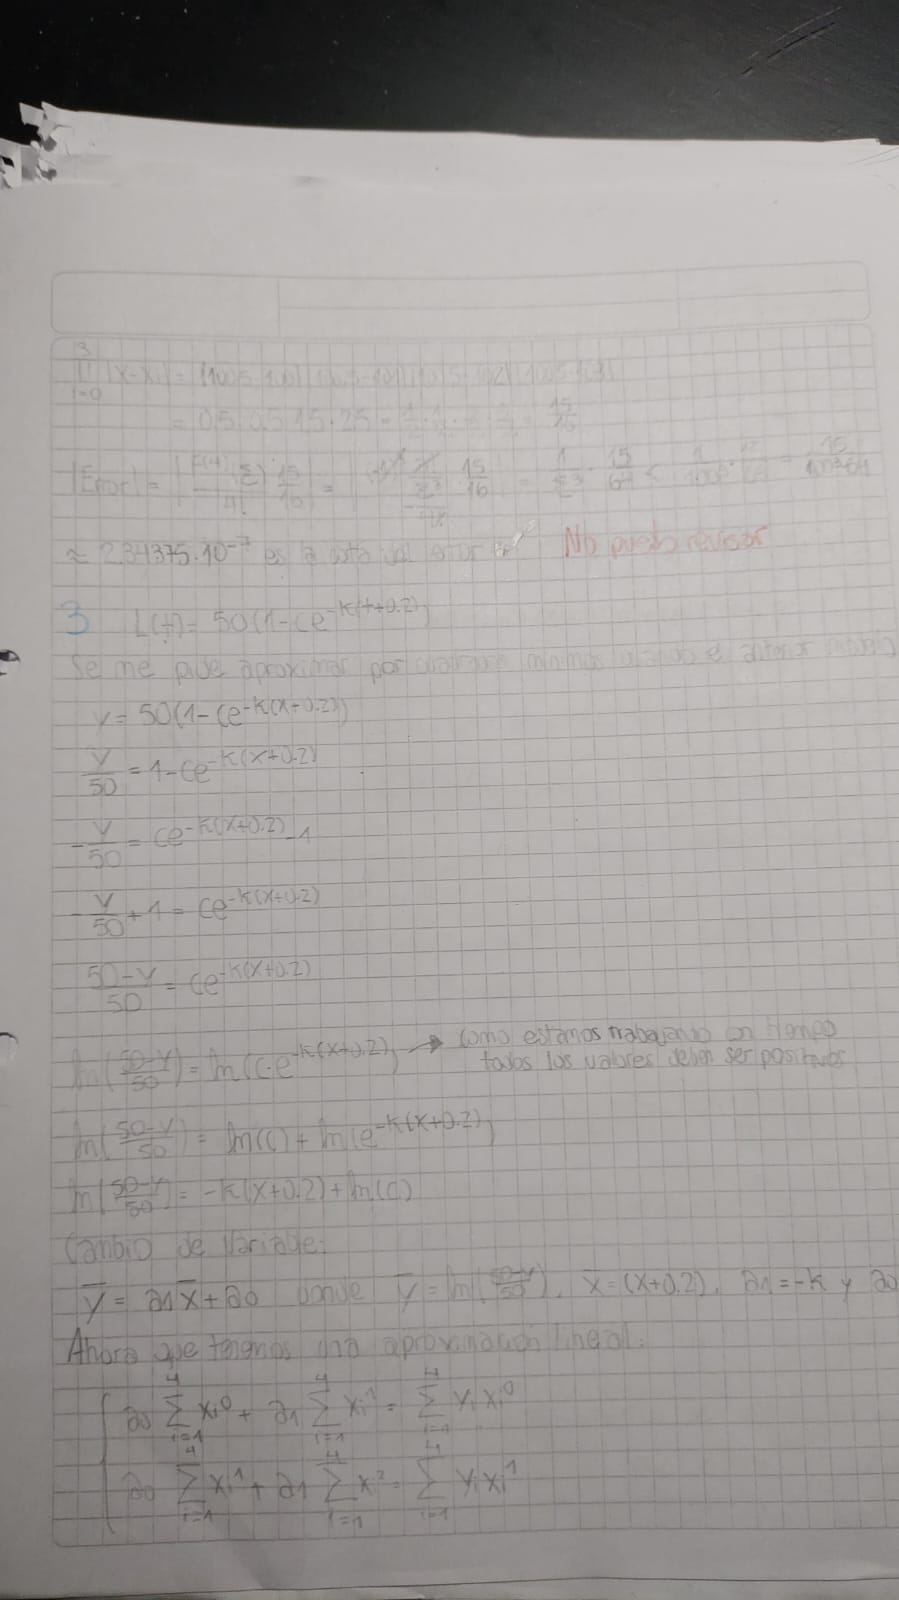 3
Π |x-xi| = |100.5-100| |100.5-101| |100.5-102| |100.5-103|
i=0
= 0.5·0.5·1.5·2.5 = = 15/16
|Error| = | 15/16 | = 15/16 = 1/ξ³ · 15/64 < = 15/100³·64
≈ 2.34375·10⁻⁷ es la cota del error No puedo revisar
3 L(t) = 50(1-ce^-k(t+0.2))
Se me pide aproximar por cuadrados mínimos usando el anterior modelo
y = 50(1-ce^-k(x+0.2))
y/50 = 1-ce^-k(x+0.2)
-y/50 = ce^-k(x+0.2)-1
-y/50 + 1 = ce^-k(x+0.2)
50-y/50 = ce^-k(x+0.2)
ln(50-y/50) = ln(c·e^-k(x+0.2)) → como estamos trabajando con tiempo
todos los valores deben ser positivos
ln(50-y/50) = ln(c) + ln(e^-k(x+0.2))
ln(50-y/50) = -k(x+0.2)+ln(c)
Cambio de Variable:
ȳ = a1x̄ + a0 donde ȳ = ln(50-y/50), x̄ = (x+0.2), a1 = -k y a0
Ahora que tenemos una aproximación lineal:
a0 4Σi=1 xi⁰ + a1 4Σi=1 xi¹ = 4Σi=1 yi xi⁰
a0 4Σi=1 xi¹ + a1 4Σi=1 xi² = 4Σi=1 yi xi¹